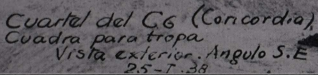 Cuartel del C6 (Concordia)
Cuadra para tropa
Vista exterior. Angulo S.E
25-I-38